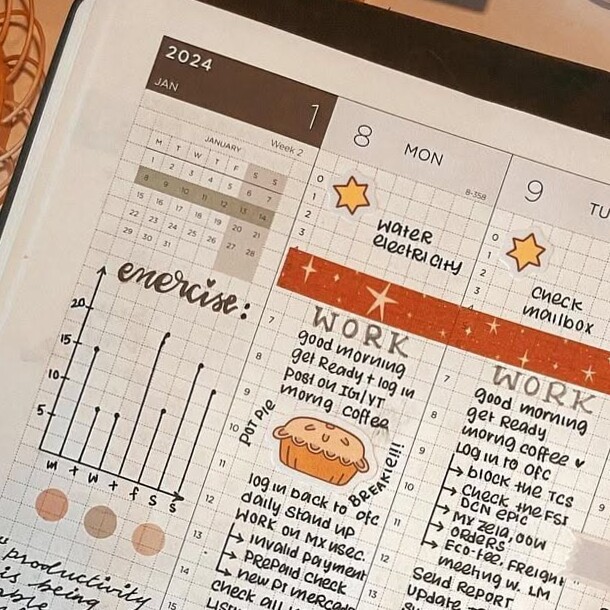 2024
JAN
1
JANUARY
Week 2
M T W T F S S
1 2 3 4 5 6 7
8 9 10 11 12 13 14
15 16 17 18 19 20 21
22 23 24 25 26 27 28
29 30 31
exercise:
20
15
10
5
M T W T F S S
"productivity
is being
8 MON
8-358
0
1
2
3
water
electricity
WORK
7
good morning
8
get Ready + log in
post on IG/YT
9
morng coffee
10
POT PIE
BREAKIE!!!
11
log in back to ofc
12
daily stand up
WORK on MX USEC.
13
→ invalid payment
→ prepaid check
14
→ new PI mercado
check all
15
9 TU
0
1
2
3
check
mailbox
WORK
7
good morning
get Ready
8
morng coffee ♥
9
Log in to ofc
→ block the TCS
10
→ Check the FSI
DCN epic
11
→ MX zela, oow
→ orders
→ Eco-fee, Freight
12
meeting w. LM
Send Report
13
update
9
10
11